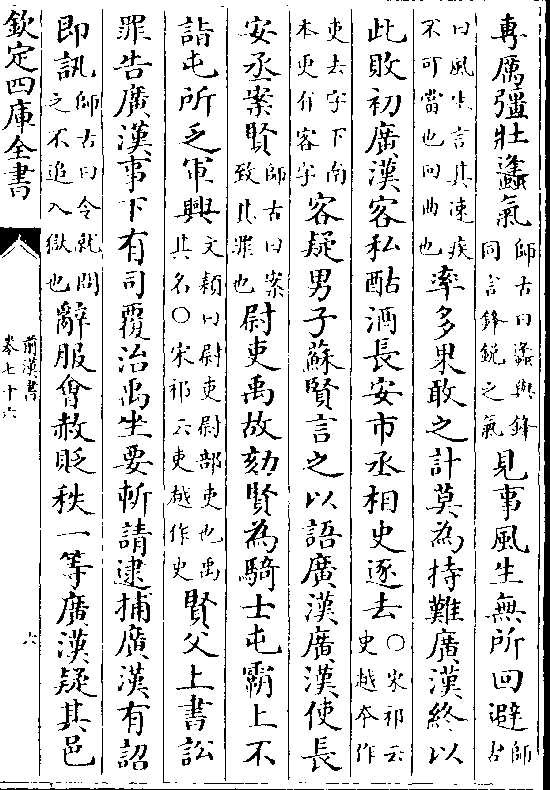 專厲彊壯蠭氣師古曰蠭與鋒同言鋒銳之氣見事風生無所回避師古
曰風生言其速疾不可當也回曲也率多果敢之計莫為持難廣漢終以
此敗初廣漢客私酤酒長安市丞相史逐去○宋祁云史越本作
吏去字下南本更有客字客疑男子蘇賢言之以語廣漢廣漢使長
安丞案賢師古曰案致其罪也尉吏禹故劾賢為騎士屯霸上不
詣屯所乏軍興文穎曰尉吏尉部吏也禹其名○宋祁云吏越作史賢父上書訟
罪告廣漢事下有司覆治禹坐要斬請逮捕廣漢有詔
即訊師古曰令就問之不追入獄也辭服會赦貶秩一等廣漢疑其邑
欽定四庫全書
前漢書
卷七十六
六